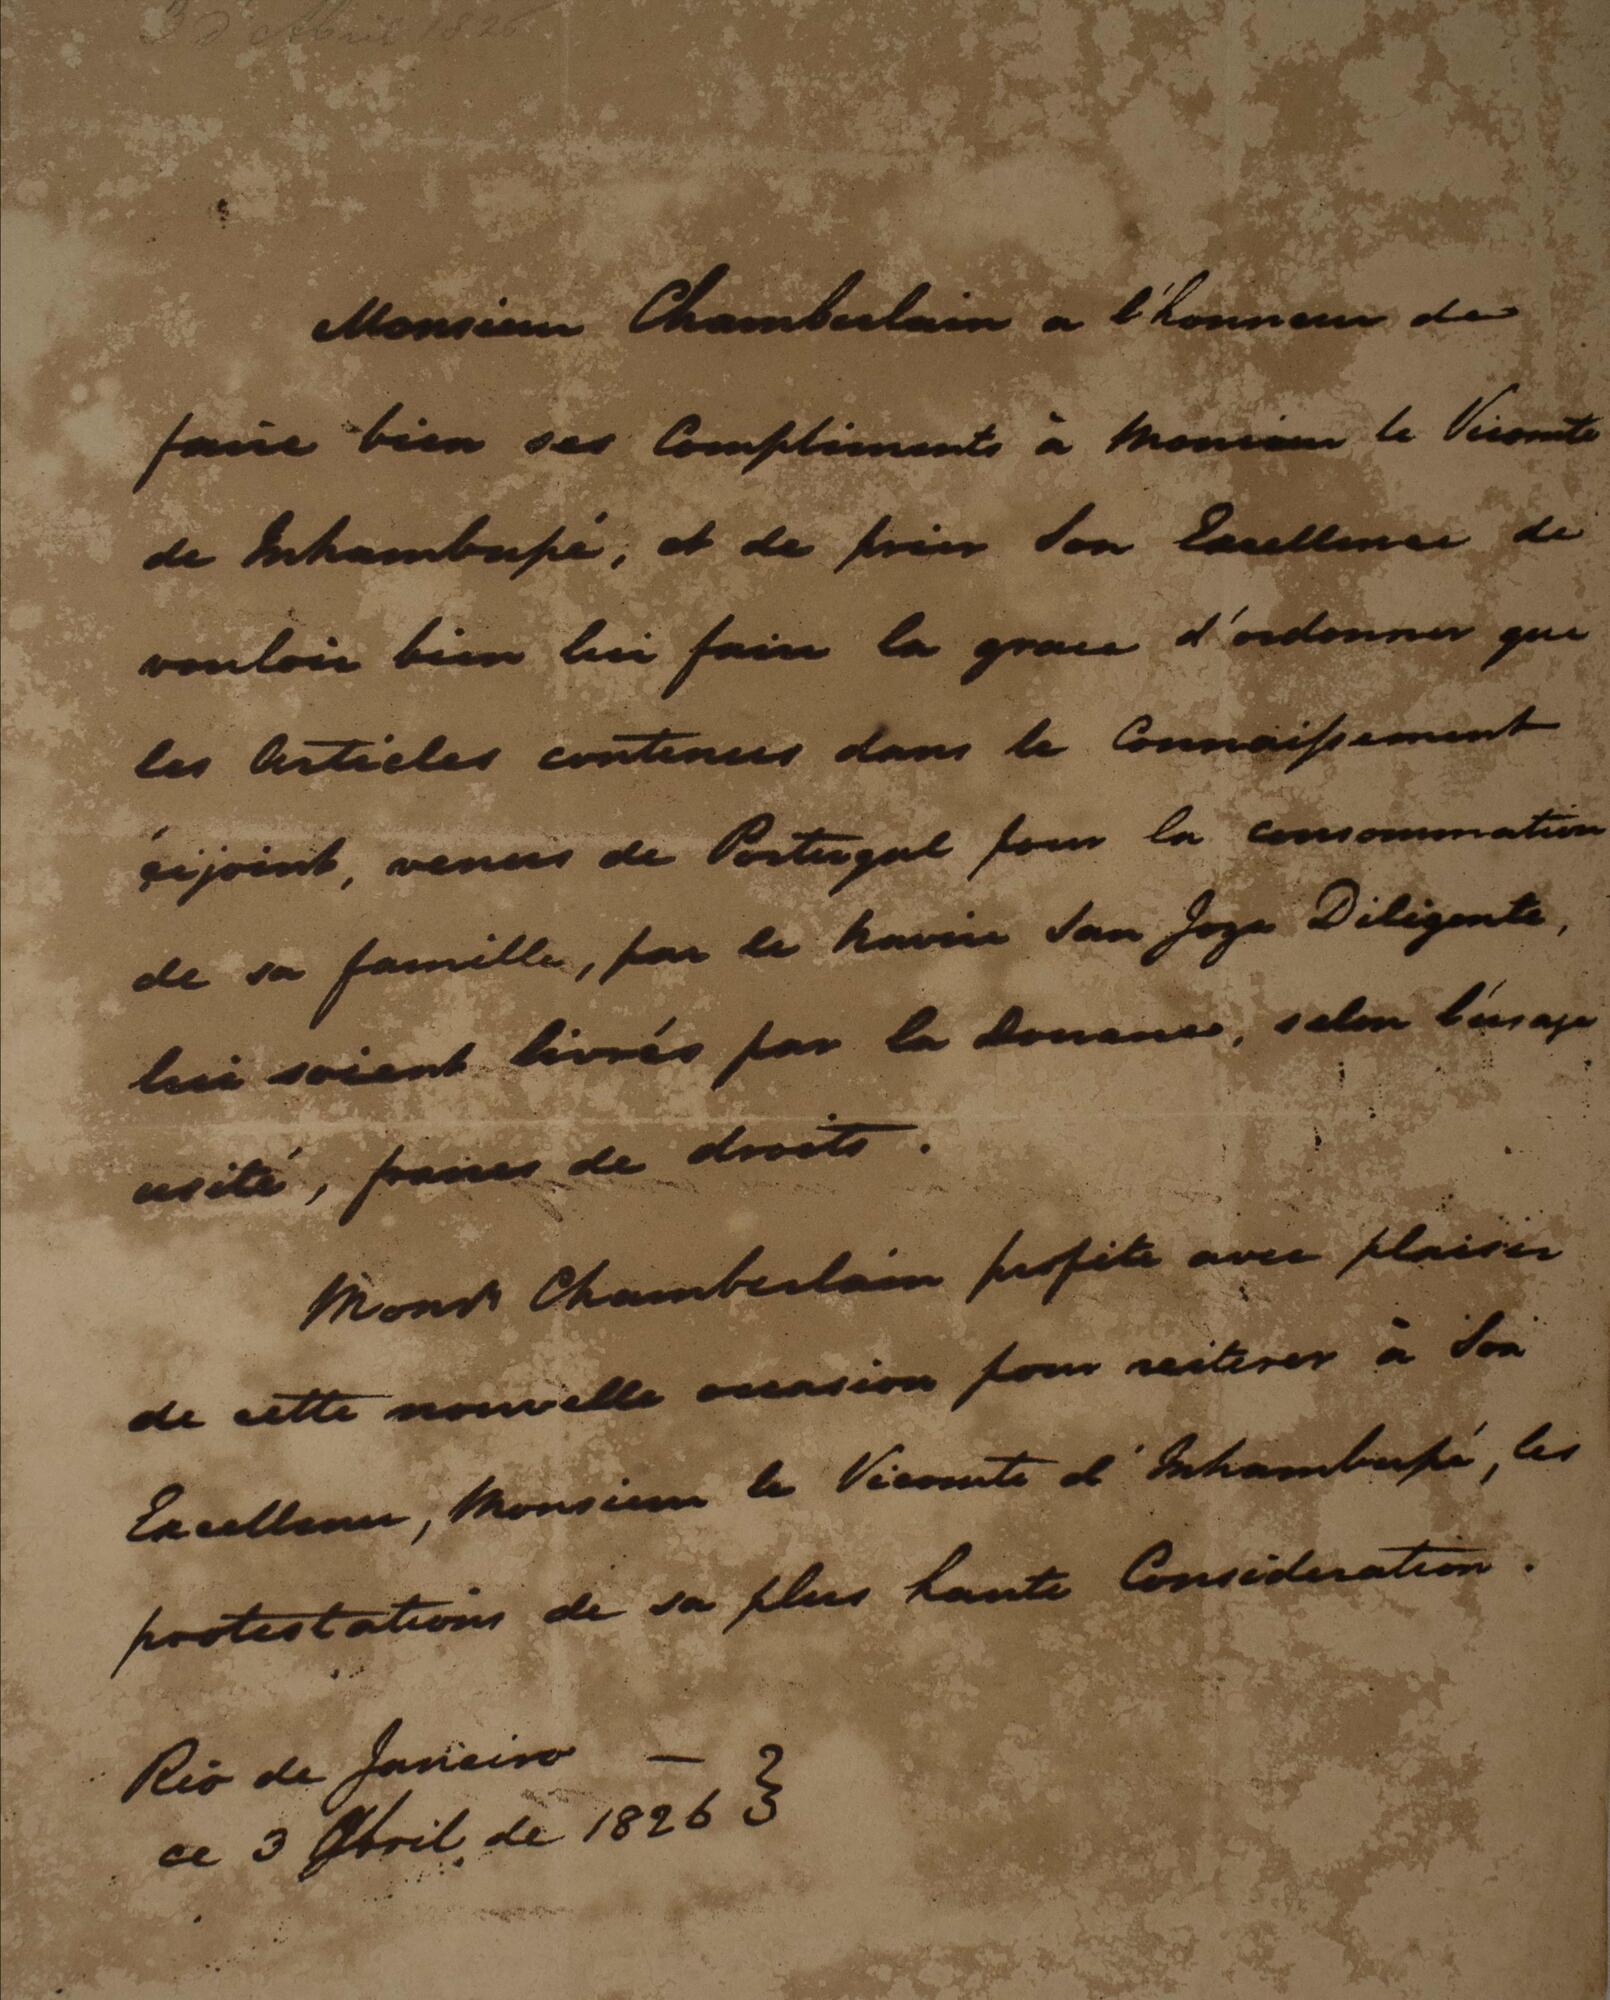 3 d'Abril 1826
Monsieur Chamberlain a l'honneur de
faire bien ses Compliments à Monsieur le Vicomte
de Inhambupé, et de prier Son Excellence de
vouloir bien lui faire la grace d'ordonner que
les Articles contenus dans le Connaissement
çijoint, venus de Portugal pour la consommation
de sa famille, par le Navire San Joze Diligente,
lui soient livrés par la Douane, selon l'usage
usité, francs de droits.
Monsr Chamberlain profite avec plaisir
de cette nouvelle occasion pour reiterer à Son
Excellence, Monsieur le Vicomte d'Inhambupé, les
protestations de sa plus haute Consideration.
Rio de Janeiro — }
ce 3 Abril de 1826 }